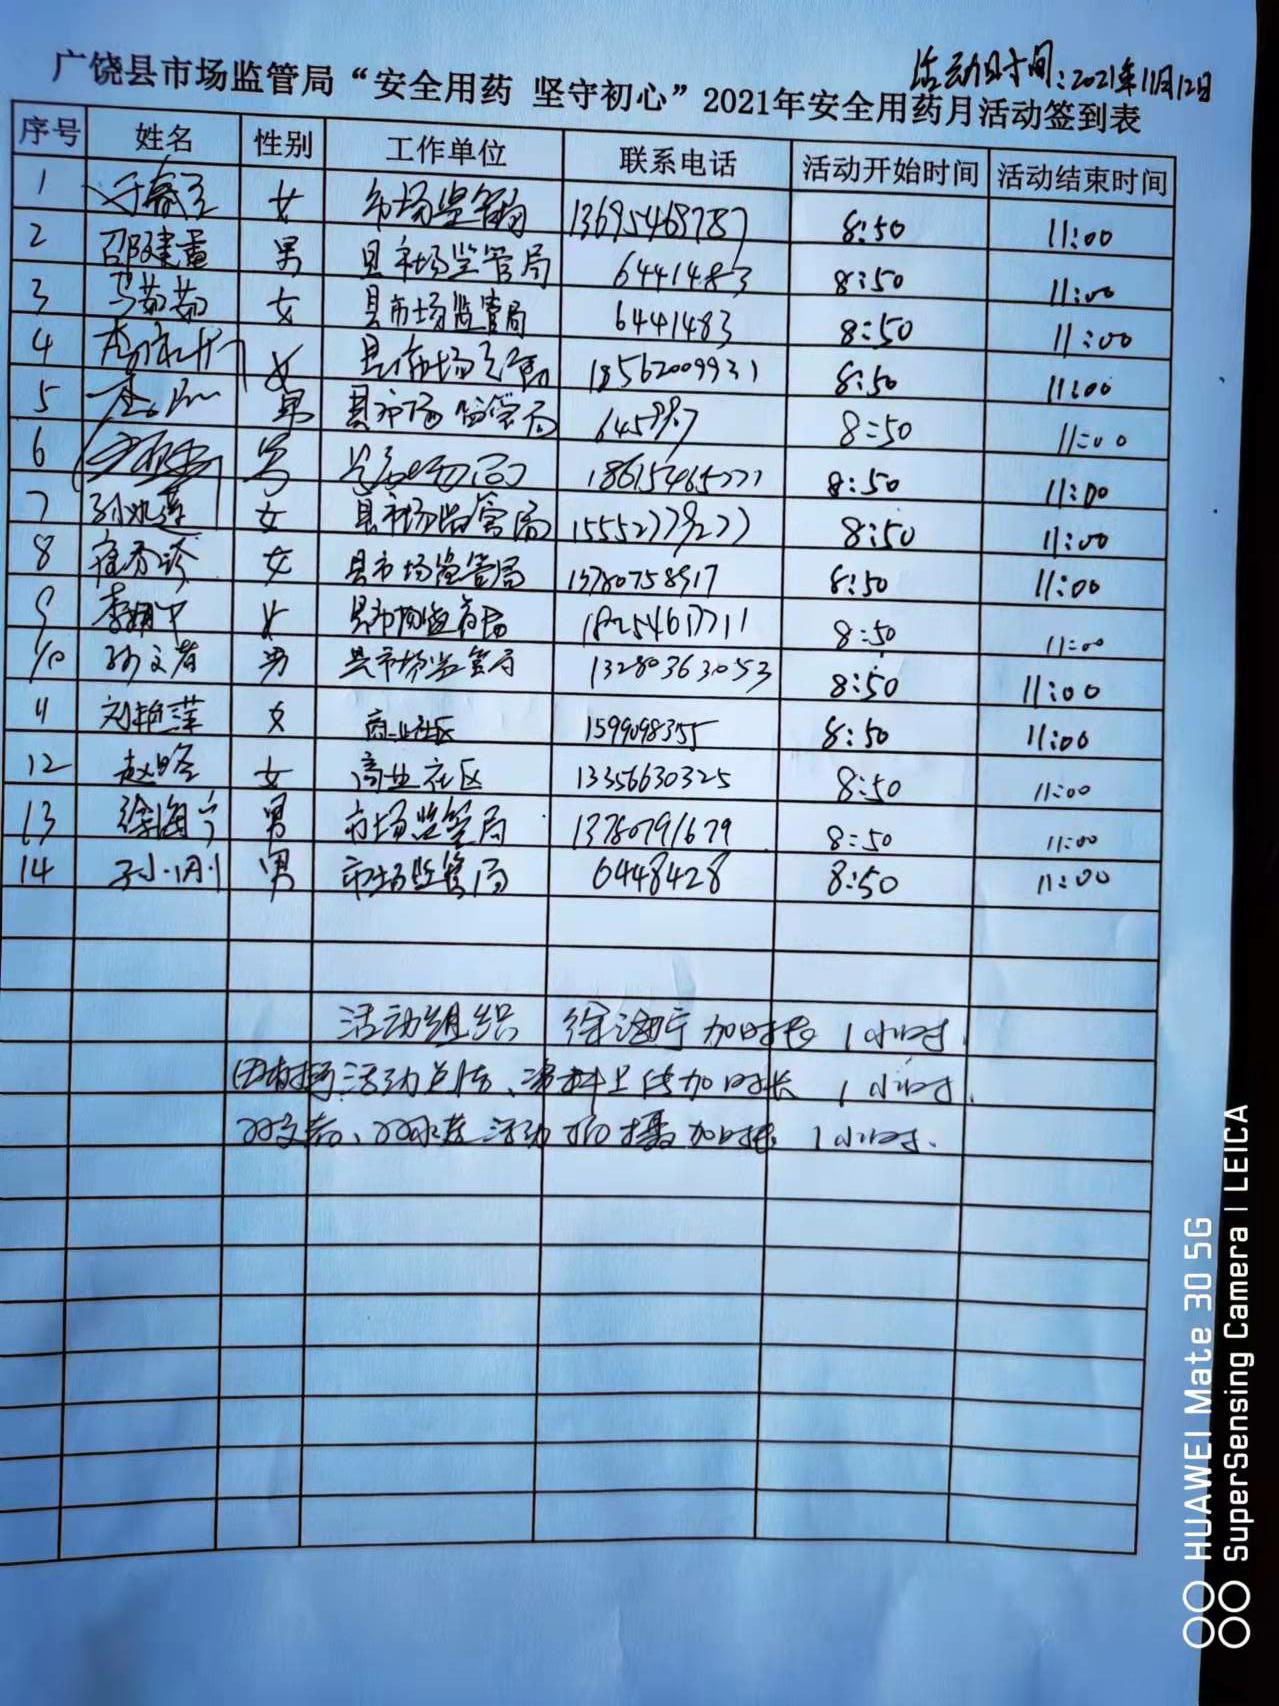 活动时间:2021年11月12日
广饶县市场监管局“安全用药 坚守初心”2021年安全用药月活动签到表
序号 姓名 性别 工作单位 联系电话 活动开始时间 活动结束时间
1 女 市场监管局 13695468787 8:50 11:00
2 邵建重 男 县市场监管局 6441483 8:50 11:00
3 马茹茹 女 县市场监管局 6441483 8:50 11:00
4 女 18562009931 8:50 11:00
5 男 县市场监管局 8:50 11:00
6 男 8:50 11:00
7 孙冰莲 女 县市场监管局 8:50 11:00
8 崔秀珍 女 县市场监管局 13780758517 8:50 11:00
9 女 县市场监管局 8:50 11:00
10 孙文君 男 县市场监管局 13280363053 8:50 11:00
11 刘艳萍 女 商业社区 8:50 11:00
12 女 商业社区 13356630325 8:50 11:00
13 徐海宁 男 市场监管局 13780791679 8:50 11:00
14 男 市场监管局 6448428 8:50 11:00
活动组织 徐海宁 加时长 1小时.
活动总结、资料上传加时长 1小时.
活动拍摄加时长 1小时.
HUAWEI Mate 30 5G
SuperSensing Camera | LEICA